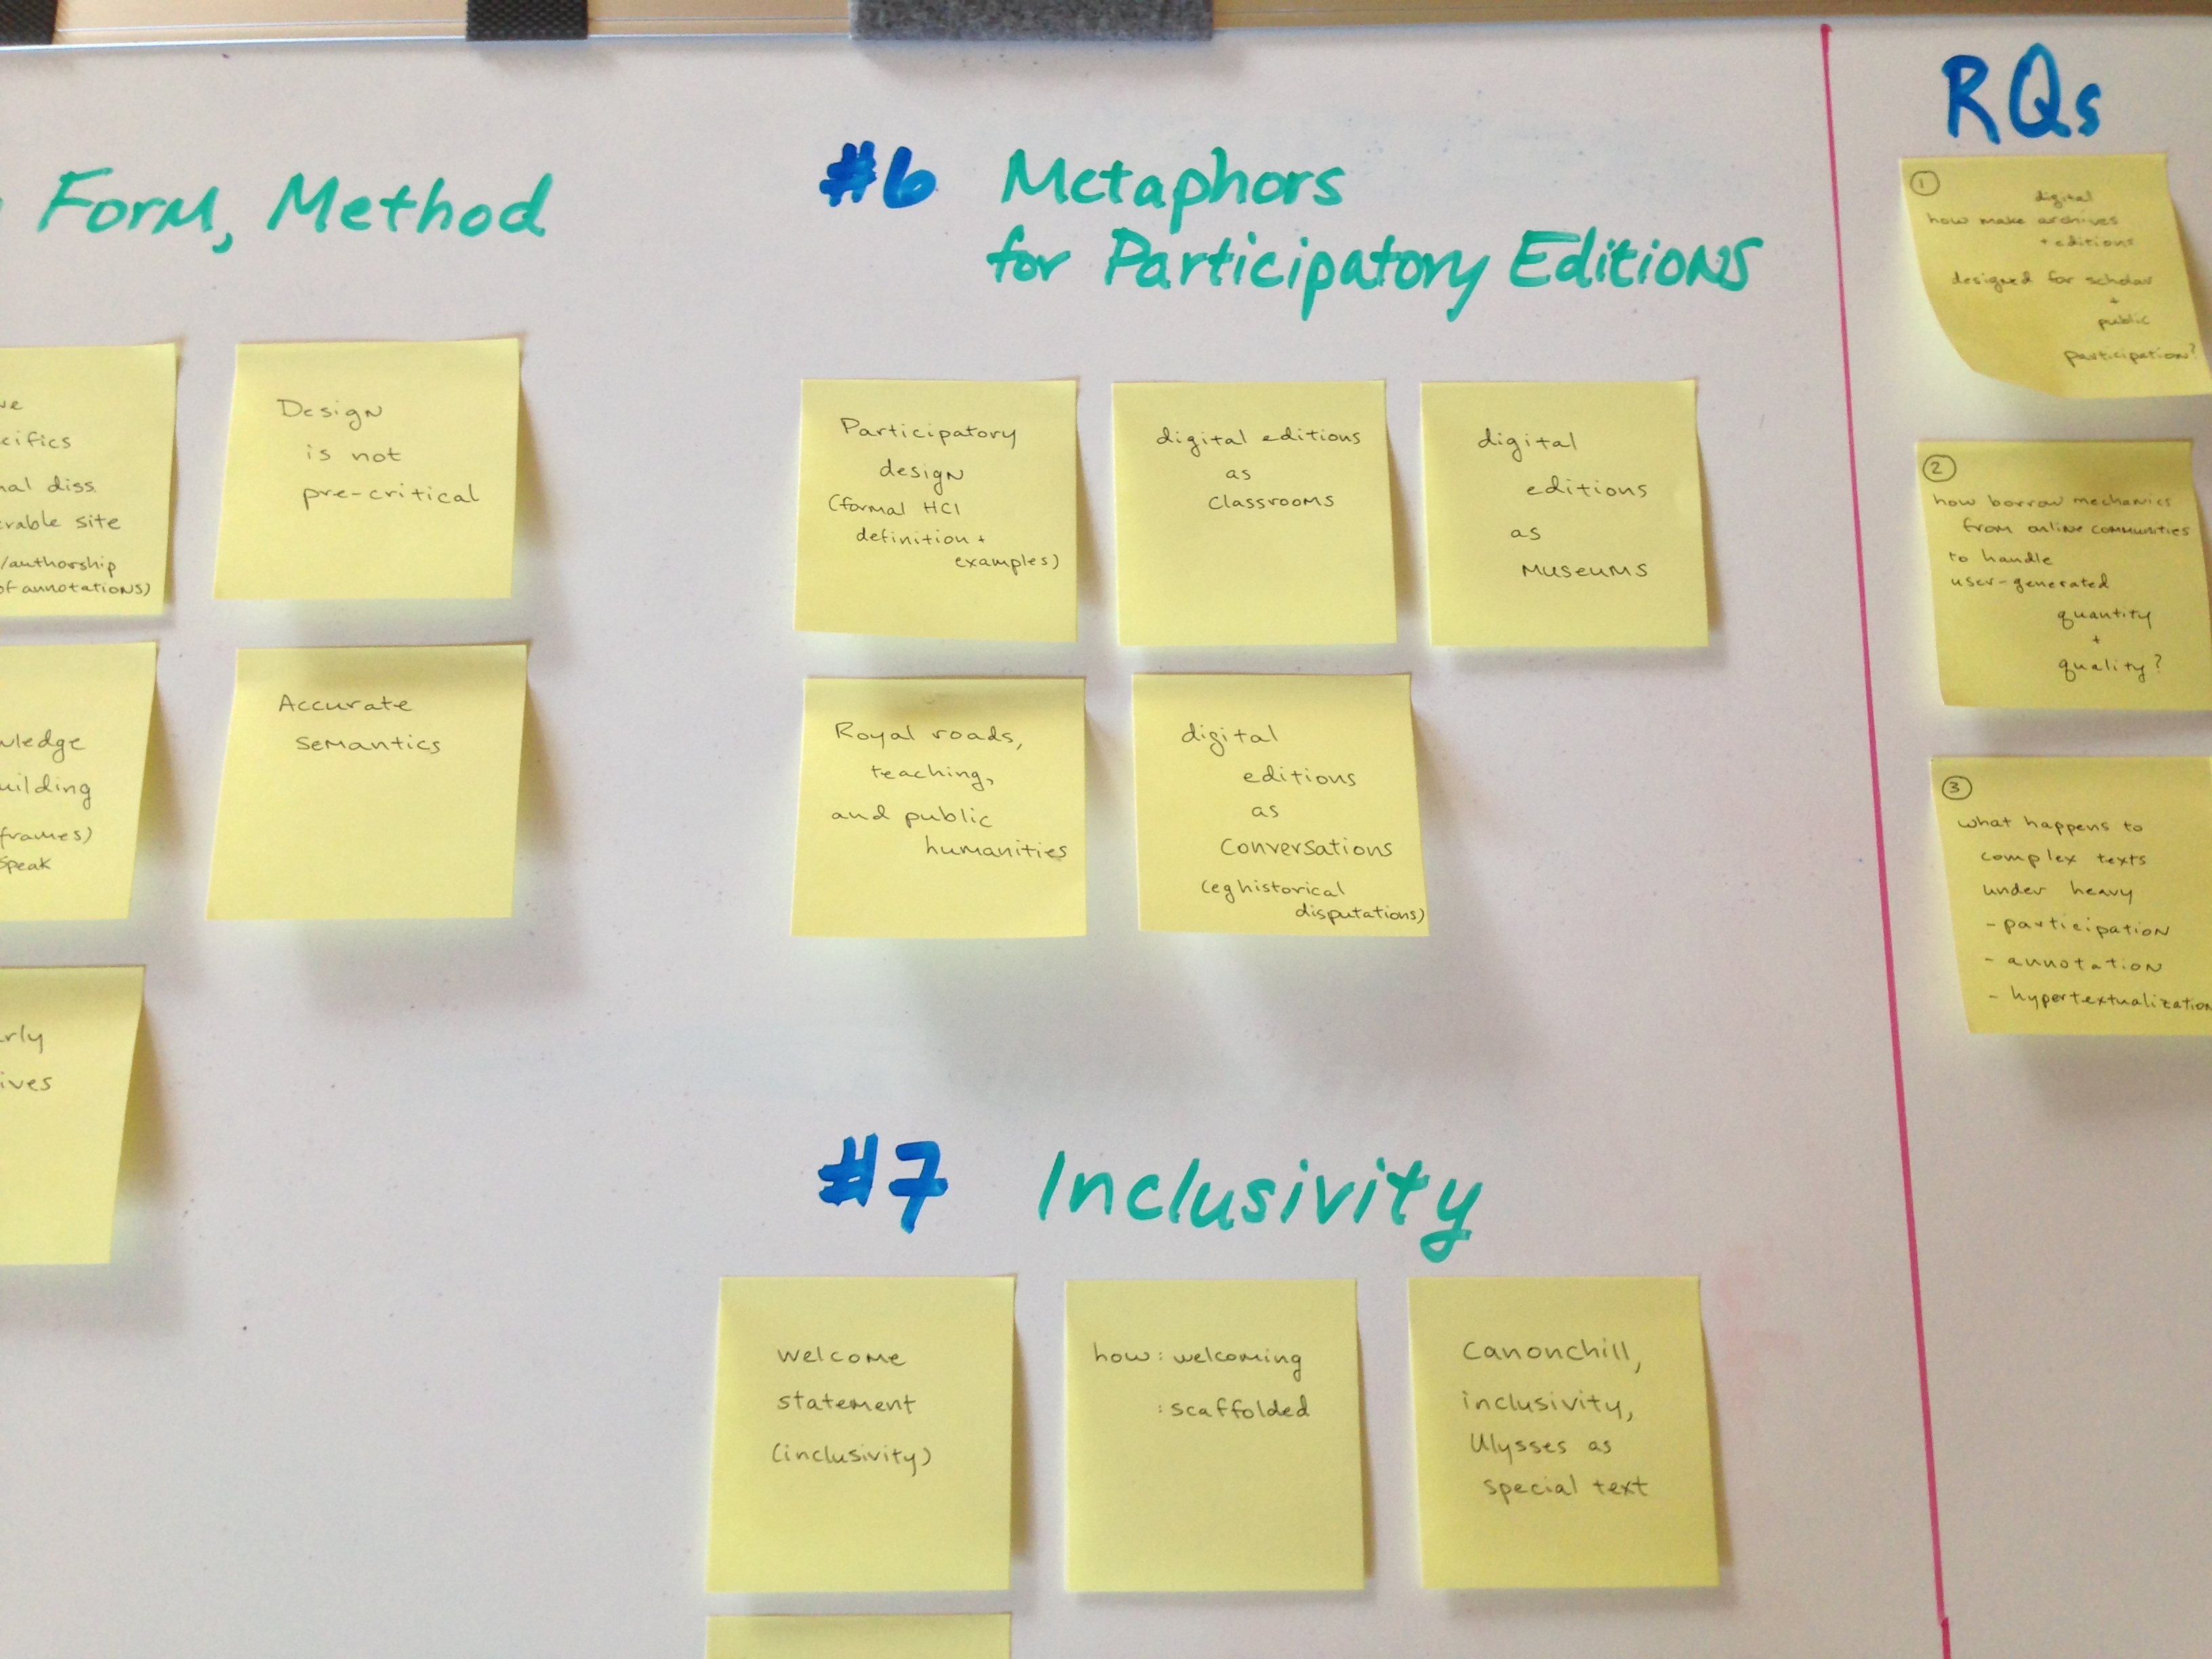 Form, Method
cifics
diss.
site
/authorship
of annotations)
Design
is not
pre-critical
frames)
speak
Accurate
semantics
#6 Metaphors
for Participatory Editions
Participatory
design
(formal HCI
definition +
examples)
digital editions
as
classrooms
digital
editions
as
museums
Royal roads,
teaching,
and public
humanities
digital
editions
as
conversations
(eg historical
disputations)
#7 Inclusivity
welcome
statement
(inclusivity)
how: welcoming
: scaffolded
Canonchill,
inclusivity,
Ulysses as
special text
RQs
1
digital
how make archives
+ editions
designed for scholar
+
public
participation?
2
how borrow mechanics
from online communities
to handle
user-generated
quantity
+
quality?
3
what happens to
complex texts
under heavy
- participation
- annotation
- hypertextualization